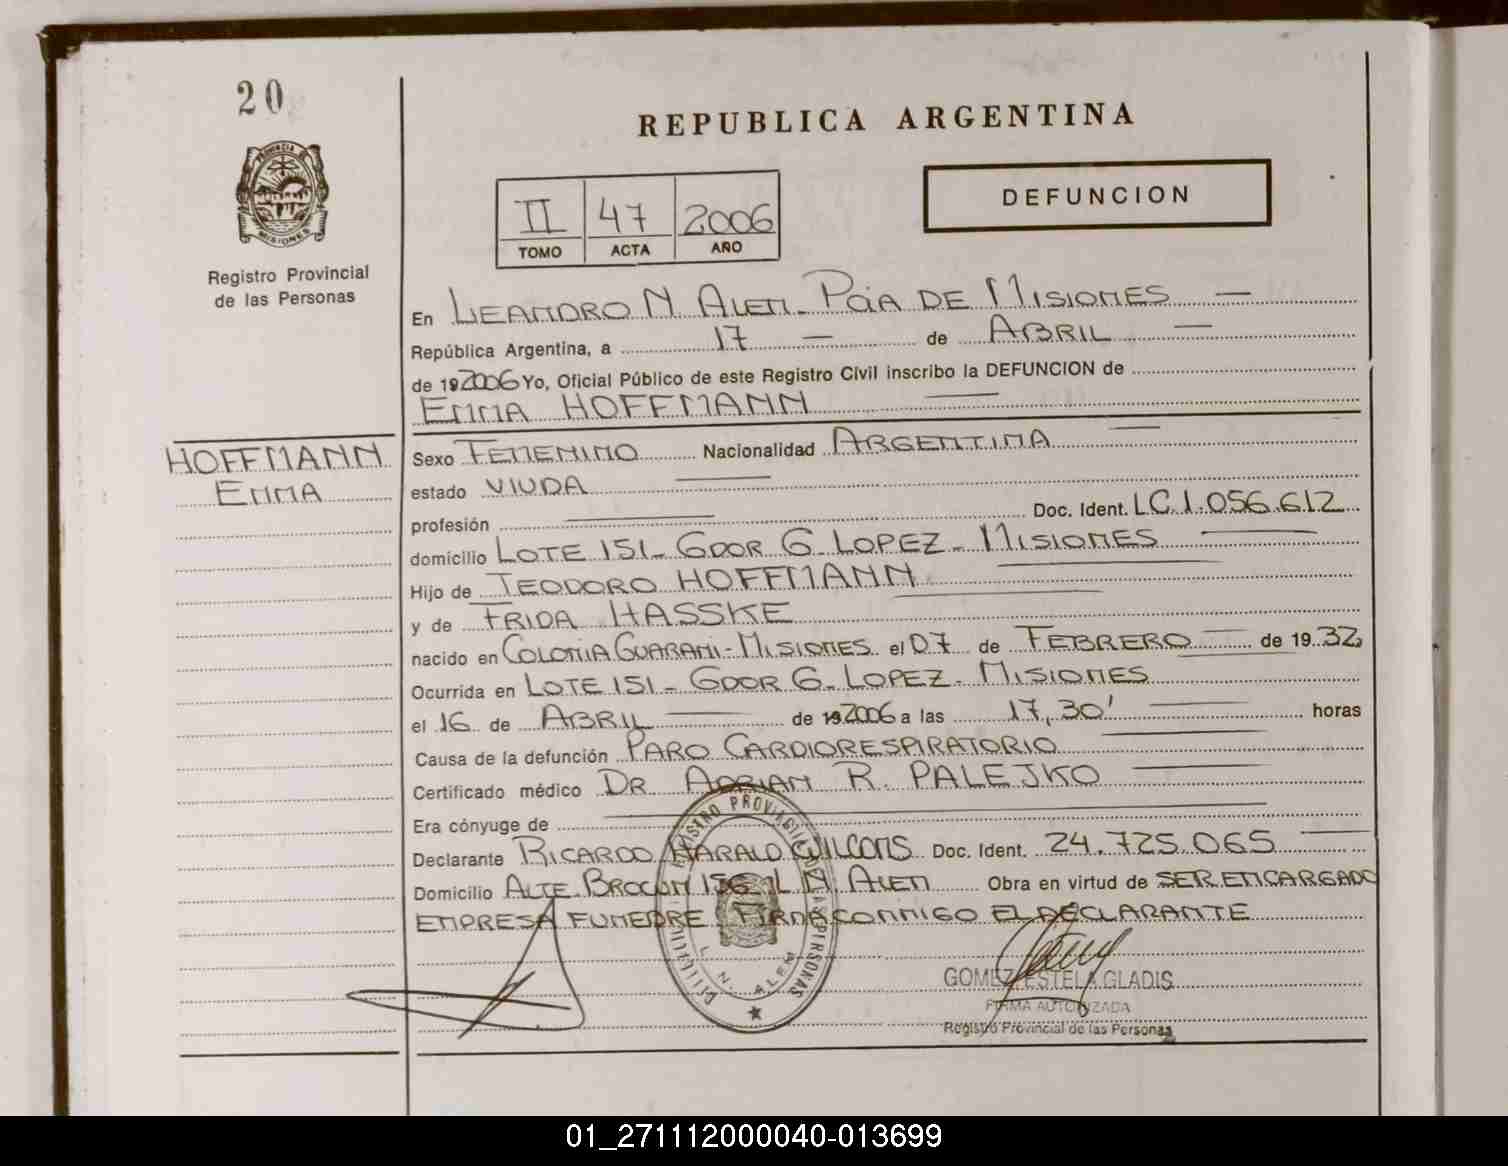 20
REPUBLICA ARGENTINA
DEFUNCION
II 47 2006
TOMO ACTA AÑO
PROVINCIA DE MISIONES
Registro Provincial
de las Personas
En LEANDRO N. ALEM - PCIA DE MISIONES —
República Argentina, a 17 — de ABRIL —
de 192006 Yo, Oficial Público de este Registro Civil inscribo la DEFUNCION de
EMMA HOFFMANN —
HOFFMANN
EMMA
Sexo FEMENINO Nacionalidad ARGENTINA —
estado VIUDA —
profesión — Doc. Ident. LC. 1.056.612
domicilio LOTE 151 - GDOR G. LOPEZ - MISIONES —
Hijo de TEODORO HOFFMANN —
y de FRIDA HASSKE —
nacido en COLONIA GUARANI - MISIONES el 07 de FEBRERO — de 19 32
Ocurrida en LOTE 151 - GDOR G. LOPEZ - MISIONES —
el 16 de ABRIL — de 192006 a las 17,30' — horas
Causa de la defunción PARO CARDIORESPIRATORIO —
Certificado médico DR ADRIAN R. PALEJKO —
Era cónyuge de —
Declarante RICARDO HARALD Doc. Ident. 24.725.065 —
Domicilio ALTE BROWN 156 - L. N. ALEM Obra en virtud de SER ENCARGADO
EMPRESA FUNEBRE. FIRMA CONMIGO EL DECLARANTE
REGISTRO PROVINCIAL DE LAS PERSONAS
L. N. ALEM
GOMEZ ESTELA GLADIS
FIRMA AUTORIZADA
Registro Provincial de las Personas
01_271112000040-013699